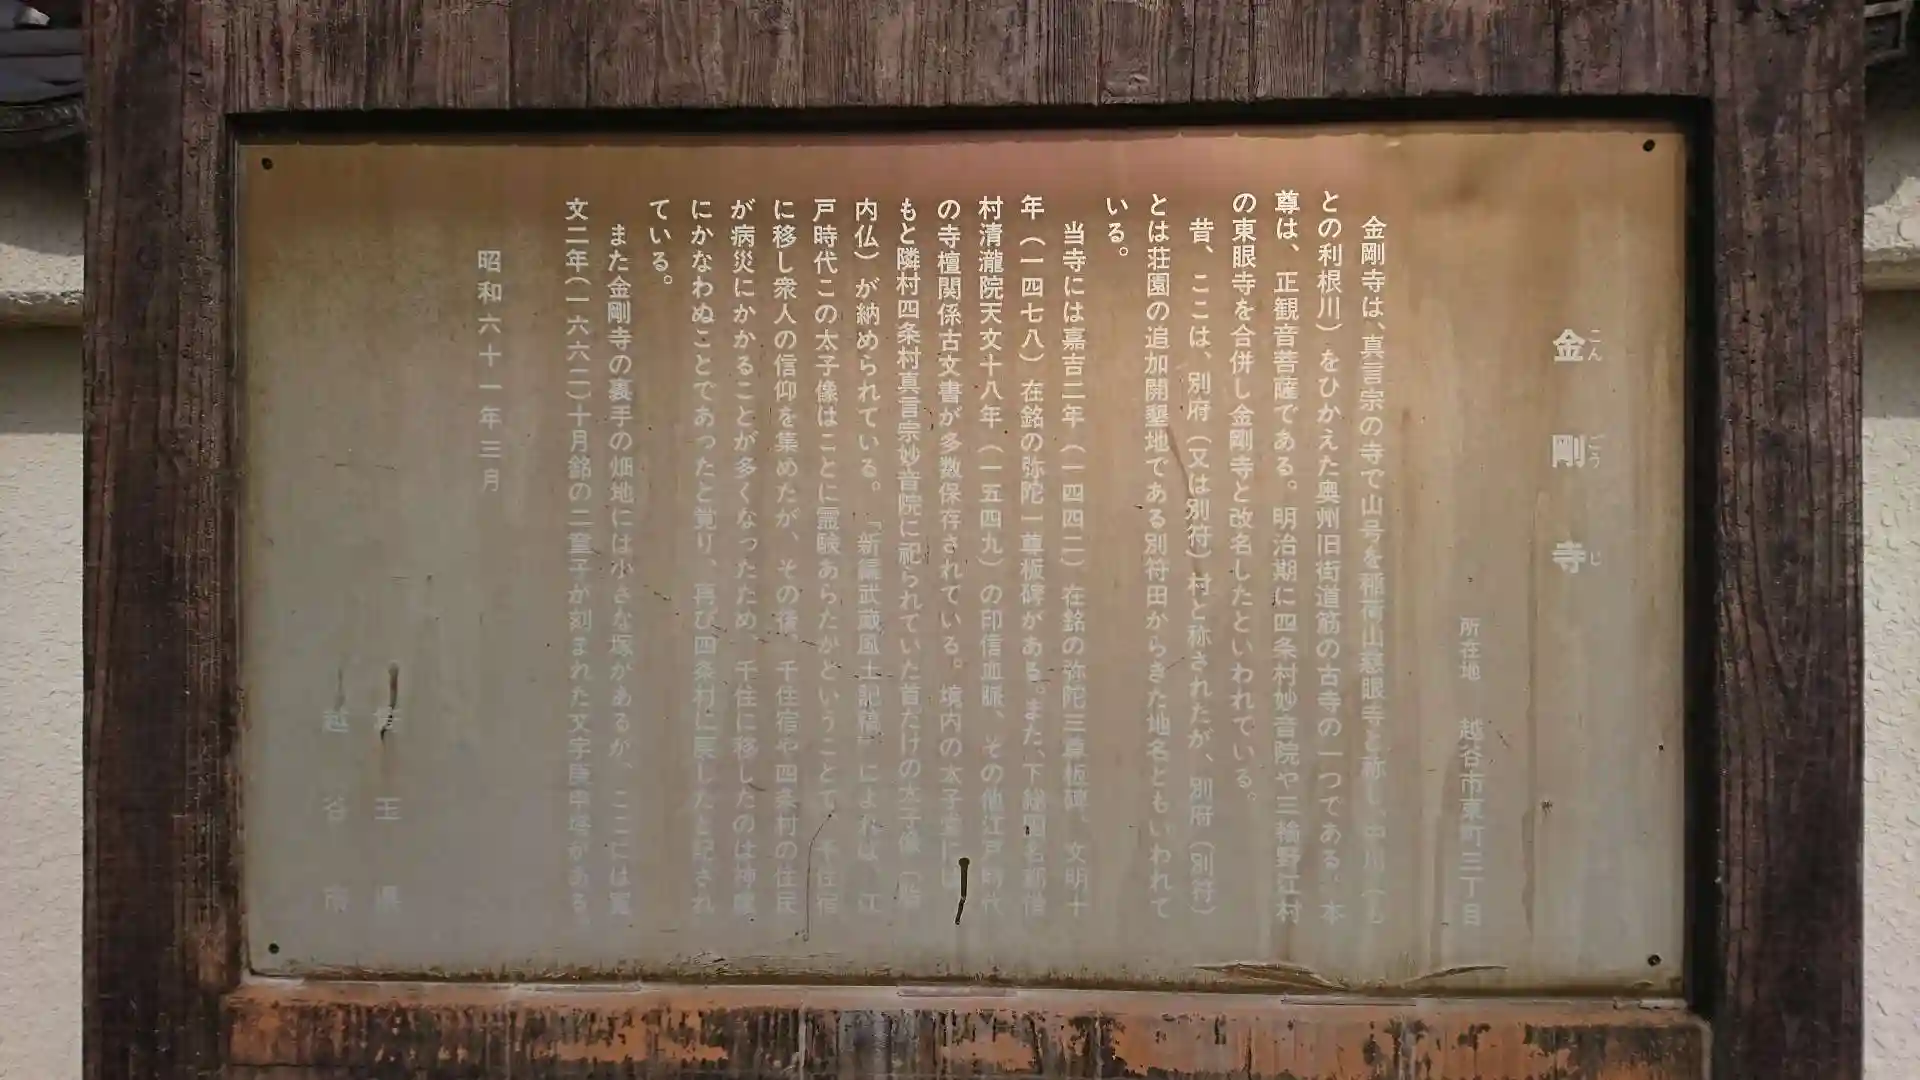 金剛寺
こんごうじ
所在地 越谷市東町三丁目
金剛寺は、真言宗の寺で山号を稲荷山慈眼寺と称し、中川(も
との利根川)をひかえた奥州旧街道筋の古寺の一つである。本
尊は、正観音菩薩である。明治期に四条村妙音院や三輪野江村
の東眼寺を合併し金剛寺と改名したといわれている。
昔、ここは、別府(又は別符)村と称されたが、別府(別符)
とは荘園の追加開墾地である別符田からきた地名ともいわれて
いる。
当寺には嘉吉二年(一四四二)在銘の弥陀三尊板碑、文明十
年(一四七八)在銘の弥陀一尊板碑がある。また、下総国
村清瀧院天文十八年(一五四九)の印信血脈、その他江戸時代
の寺檀関係古文書が多数保存されている。境内の太子堂には、
もと隣村四条村真言宗妙音院に祀られていた首だけの太子像(胎
内仏)が納められている。「新編武蔵風土記稿」によれば、江
戸時代この太子像はことに霊験あらたかということで、千住宿
に移し衆人の信仰を集めたが、その後、千住宿や四条村の住民
が病災にかかることが多くなったため、千住に移したのは神慮
にかなわぬことであったと覚り、再び四条村に戻したと記され
ている。
また金剛寺の裏手の畑地には小さな塚があるが、ここには寛
文二年(一六六二)十月銘の二童子が刻まれた文字庚申塔がある。
昭和六十一年三月
埼玉県
越谷市